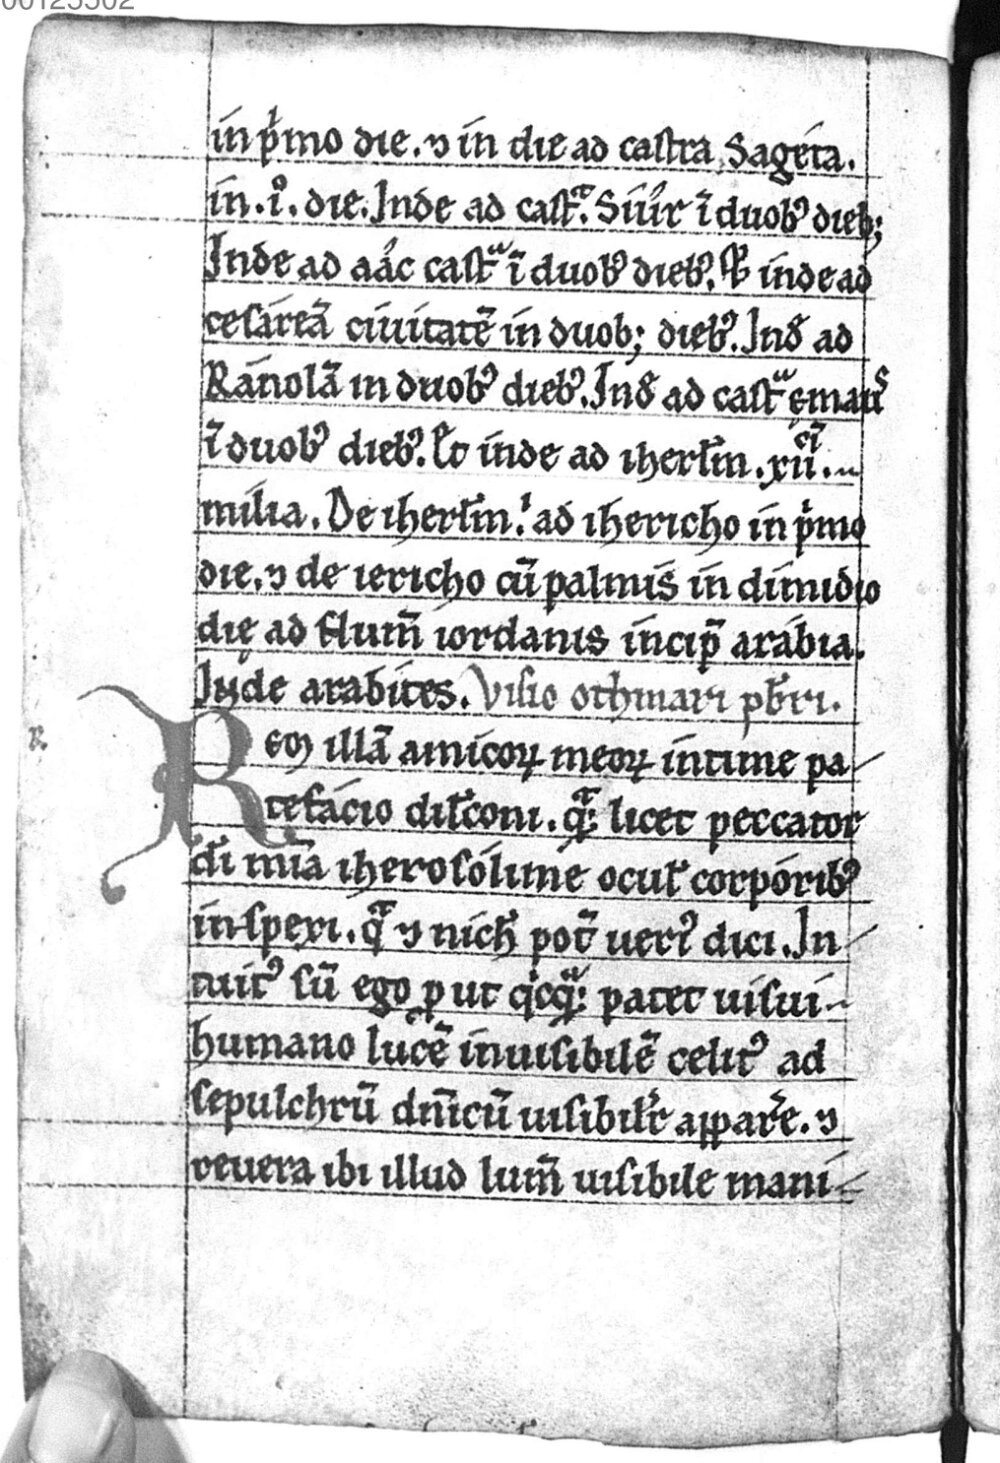 00125502
in pͥmo die. ⁊ in die ad castra Sageta.
in .iͦ. die. Inde ad castᵃ. Suu᷑r ĩ duobꝰ dieb;
Inde ad aác castᵃ ĩ duobꝰ diebꝰ. Et inde ad
cesareã ciuitatẽ in duob; diebꝰ. Ind̾ ad
Ranolã in duobꝰ diebꝰ. Ind̾ ad castᵃ emaus
ĩ duobꝰ diebꝰ. Et inde ad iherl̃m .xii.
milia. De iherl̃m. ad ihericho in pͥmo
die. ⁊ de iericho cũ palmis in dimidio
dię ad flum̃ iordanis incip̃ arabia.
Inde arabites. Visio othmari pb̃ri.
Rem illã amicoꝝ meoꝝ intime pa
tefacio dil̃coni. qᵃ licet peccator
di mĩa iherosolime ocul̃ corporibꝰ
inspexi. qᵃ ⁊ nich̃ pot̃ ueriꝰ dici. In
tuitꝰ sũ ego put qͥcqᵃ patet uisui
humano lucẽ inuisibilẽ celitꝰ ad
sepulchrũ dñicũ uisibilit̃ appare. ⁊
reuera ibi illud lum̃ uisibile mani
R